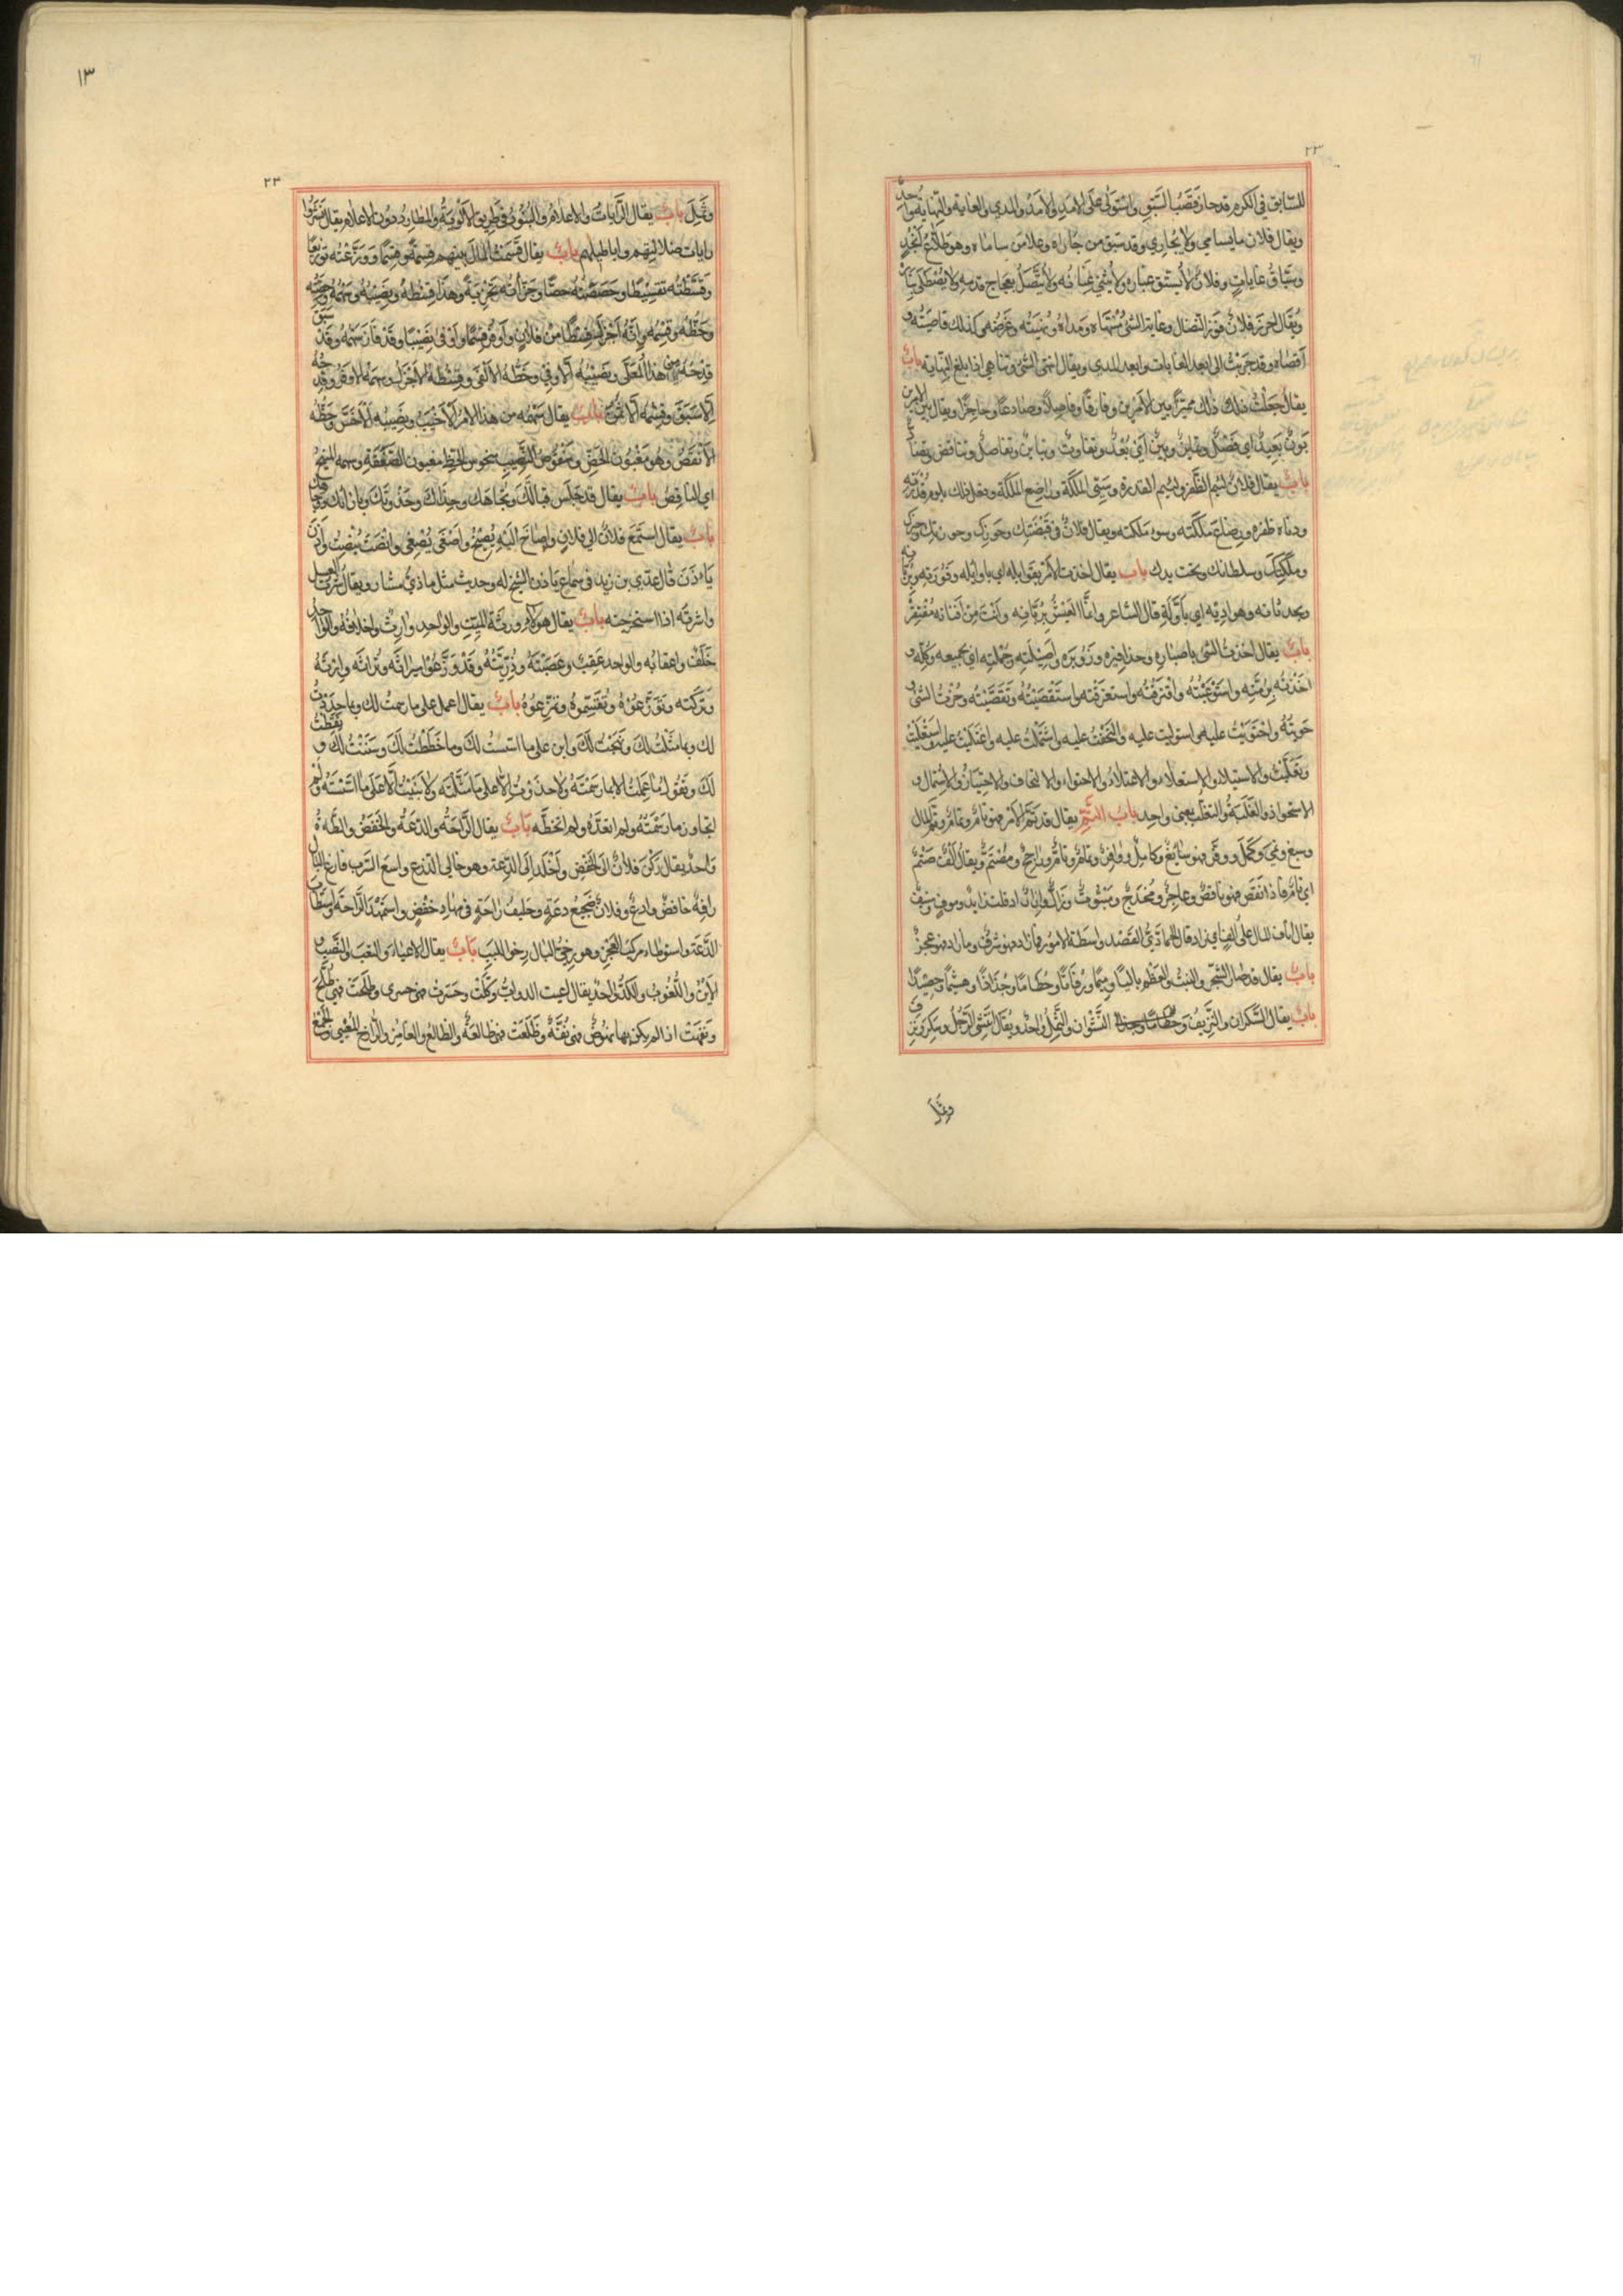 ٢٣
للسّابق في الكرم قد حاز قصب السّبق واستولى على الامد والامد والمدي والغاية والنّهاية واحدٌ
ويقال فلان ما يسامي ولا يجاري وقد سبق من جاراه وعلا من ساماه وهو طلاع انجد
وسبّاق غايات وفلان لا يشقّ غباره ولا يثني عنانه ولا يتّصل بعجاج قدمه ولا يصطلى بناره
ويقال احرز فلان فوز النضال وغاية الشئ منتهاه ومداه ونهيته وغرضه وكذلك قاصيته و
اقصاه وقد جريت الى ابعد الغايات وابعد المدي ويقال انتهى الشئ وتناهي اذا بلغ النهاية بابٌ
يقال جعلت ذلك مميّزا بين الامرين وفارقا وفاصلا وصادعا وحاجزا ويقال بين الامرين
بون بعيد اي فضل وتباين وبين اي بُعد وتفاوت وتباين وتفاصل وتناقض وتضاد
بابٌ يقال فلان لئيم الظفر ولئيم القدرة وسيّئ الملكة وراضع الملكة وفعل ذلك بلوم قدرته
ودناءة ظفره ورضاع ملكته وسوء ملكته ويقال فلان في قبضتك وحوزك وحوزتك وحيزك
وملكتك وسلطانك وتحت يدك باب يقال اخذت الامر بقوابله اي باوائله وفورته وبريّانه
وبحدثانه وهواديه اي باوّله قال الشاعر وانما العيش بربّانه وانت من افنانه مقتفر
بابٌ يقال اخذت الشئ باصباره وحذافيره وزوبره واصيلته وجملته اي بجميعه وكلّه و
اخذته برمّته واستوعبته واقترفته واستغرقته واستقصيته وتقصّيته وحزت الشئ و
حويته واحتويت عليه واستوليت عليه والتحفت عليه واشتملت عليه واعتليت عليه واستعليت
وتغلّبت والاستيلاء والاستعلاء والاعتلاء والاحتواء والالتحاف والاحتياز والاشتمال و
الاستحواذ والغلبة والتغلّب بمعنى واحد باب التتمّ يقال قد تمّ الامر فهو تام وتمام وتمّ المال
وسبغ ونمي وكمل ووفى فهو سابغ وكامل ووافٍ وتمام وتامّ وراجح ومستتم ويقال الف صتم
اي تامّ فاذا نقص فهو ناقص وعاجز ومخدج ومبتور
يقال اناف المال على الفٍ اي زاد قال الحمادي القصد واسطة الامور فما زاد فهو سرف وما زاد فهو عجز
بابٌ يقال قد صار الشجر والنبت والعظم باليا ورميما ورفاتا وحطاما وجذاذا وهشيما وحصيدا
بابٌ يقال السّكران والنزيف والنّشوان والثّمل واحد ويقال نتشى الرّجل وسكر ونزف
وثمل
١٣
٢٣
وثمل بابٌ يقال الرّايات والاعلام والبنود في طريق الالوية والمطارد دون الاعلام يقال نشروا
رايات ضلالتهم واباطيلهم بابٌ يقال قسمت المال بينهم قسمة وقسما ووزّعته توزيعا
وقسّطته تقسيطا وحصصته حصصا وجزأته تجزية وهذا قسطه ونصيبه وسهمه وحصّته
وحظّه وقسمه وانّه اجزل قسطا من فلان واوفر قسما واوفى نصيبا وقد فاز سهمه وقد سبق
قدحه من هذا المعلّى ونصيبه الاوفى وحظّه الالقى وقسطه الاجزل وسهمه الاوفر وقدحه
الاسبق وقسمه الانجح بابٌ يقال سهمه من هذا الامر الاخيب ونصيبه الاخس وحظّه
الانقص وهو مغبون الحظ ومنقوص النّصيب مبخوس الحظ مغبون الصّفقة وسهمه المنيح
اي الناقص بابٌ يقال قد جلس قبالتك وتجاهك وحذاك وحذوتك وبازائك وقبالك
بابٌ يقال استمع فلان الى فلان واصاخ اليه يصيخ واصغى يصغى وانصت ينصت واذن
ياءذن قال عديّ بن زيد في سماع ياذن الشيخ له وحديث مثل ماذيّ مشار ويقال شرت العسل
واشرته اذا استخرجته بابٌ يقال هولاء ورثة الميّت والواحد وارث واخلافه والواحد
خلف واعقابه والواحد عقب وعصبته وذرّيّته وقد وزّعوا ميراثه وتراثه وارثه
وتركته وتوزّعوه وتقسّموه وتمزّعوه بابٌ يقال اعمل على ما رسمت لك وبما حددت
لك وبما مثّلت لك ونهجت لك وابن على ما اسّست لك وما خططت لك وسننت لك و
لك وتقول ما عملت الا بما رسمته ولا حذوت الا على ما مثّلته ولا بنيت الا على ما اسّسته ولم
اتجاوز ما رسمته ولم اتعدّه ولم اتخطّه بابٌ يقال الرّاحة والدّعة والخفض
واحد يقال ركن فلان الى الخفض واخلد الى الدّعة وهو خالي الذرع واسع السّرب فارغ البال
رافه خافض وادع وفلان ضجيع دعة وحليف راحة في مهاد خفض واستمهد الرّاحة
الدّعة واستوطاء مركب العجز وهو رخيّ البال رخو اللبب بابٌ يقال الاعياء والتعب والنّصب
الاين واللّغوب والكدّ واحد يقال اعيت الدواب وكلّت وحسرت فهي حسرى وطلحت فهي طلح
ونفهت اذا لم يكن بها نهوض فهي نفّه وظلعت فهي ظالعة والظالع والغامز والرازح المعيي